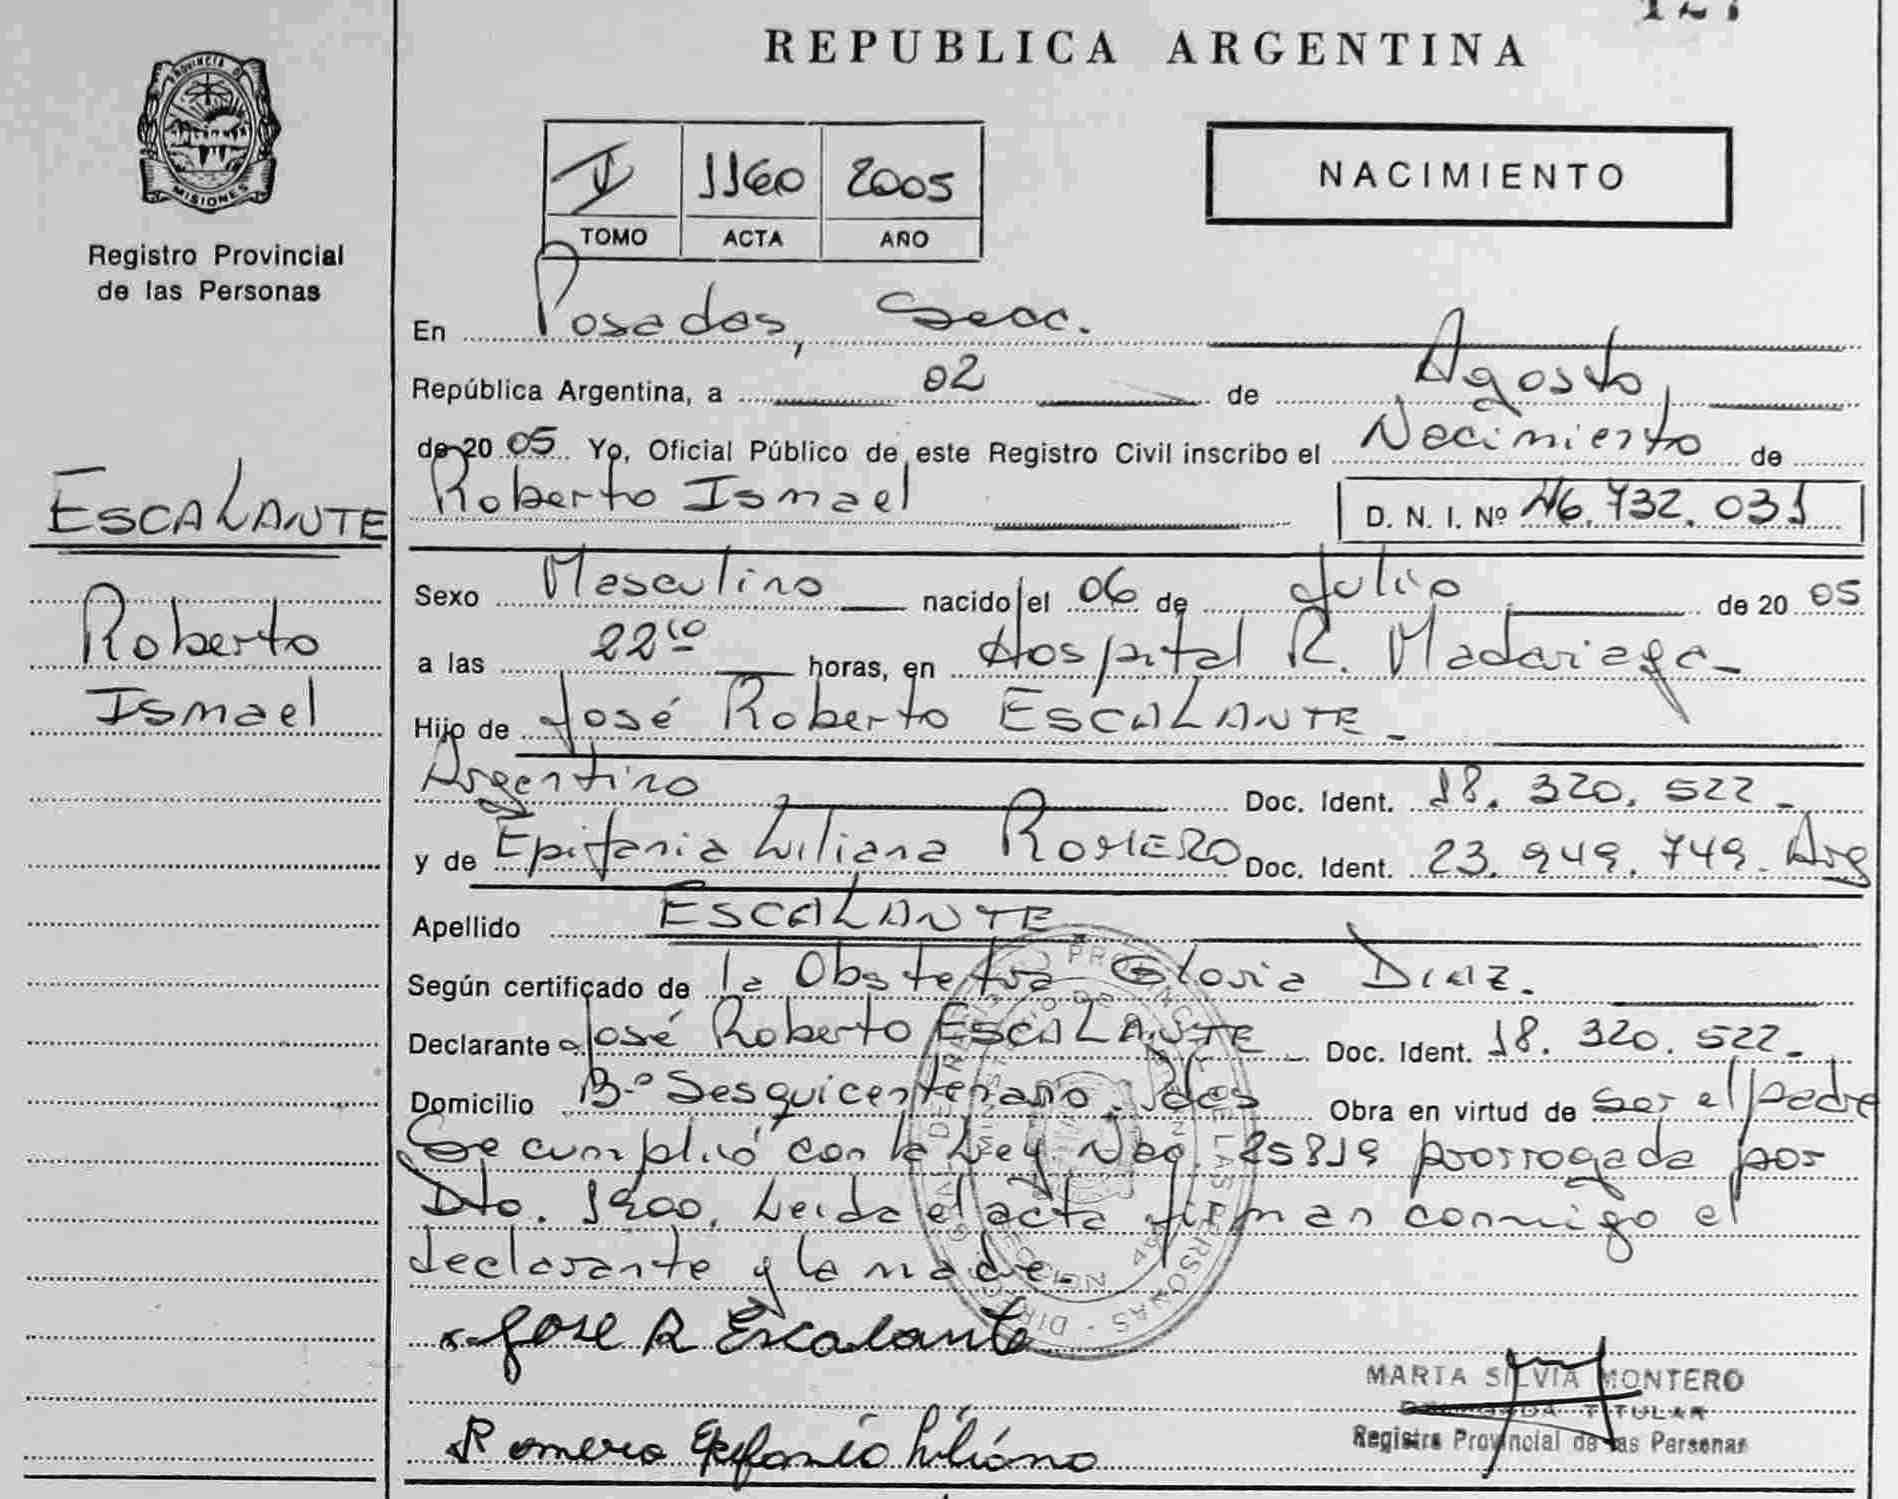 REPUBLICA ARGENTINA
PROVINCIA DE
MISIONES
Registro Provincial
de las Personas
1160 2005
TOMO ACTA AÑO
NACIMIENTO
En Posadas, Secc.
República Argentina, a 02 de Agosto,
de 20 05 Yo, Oficial Público de este Registro Civil inscribo el Nacimiento de
Roberto Ismael D. N. I. Nº 46.732.031
ESCALANTE
Roberto
Ismael
Sexo Masculino nacido el 06 de Julio de 20 05
a las 22¹⁰ horas, en Hospital R. Madariaga-
Hijo de José Roberto ESCALANTE-
Argentino Doc. Ident. 18.320.522-
y de Epifania Liliana ROMERO Doc. Ident. 23.949.749. Arg
Apellido ESCALANTE
Según certificado de la Obstetra Gloria DIAZ.
Declarante José Roberto ESCALANTE Doc. Ident. 18.320.522-
Domicilio B-º Sesquicentenario, Pdas Obra en virtud de Ser el padre
Se cumplió con la Ley Nac. 25819 prorrogada por
Dto. 1900. Leida el acta firman conmigo el
declarante y la madre-
Jose R Escalante
Romero Epifania Liliana
MARTA SILVIA MONTERO
TITULAR
Registro Provincial de las Personas